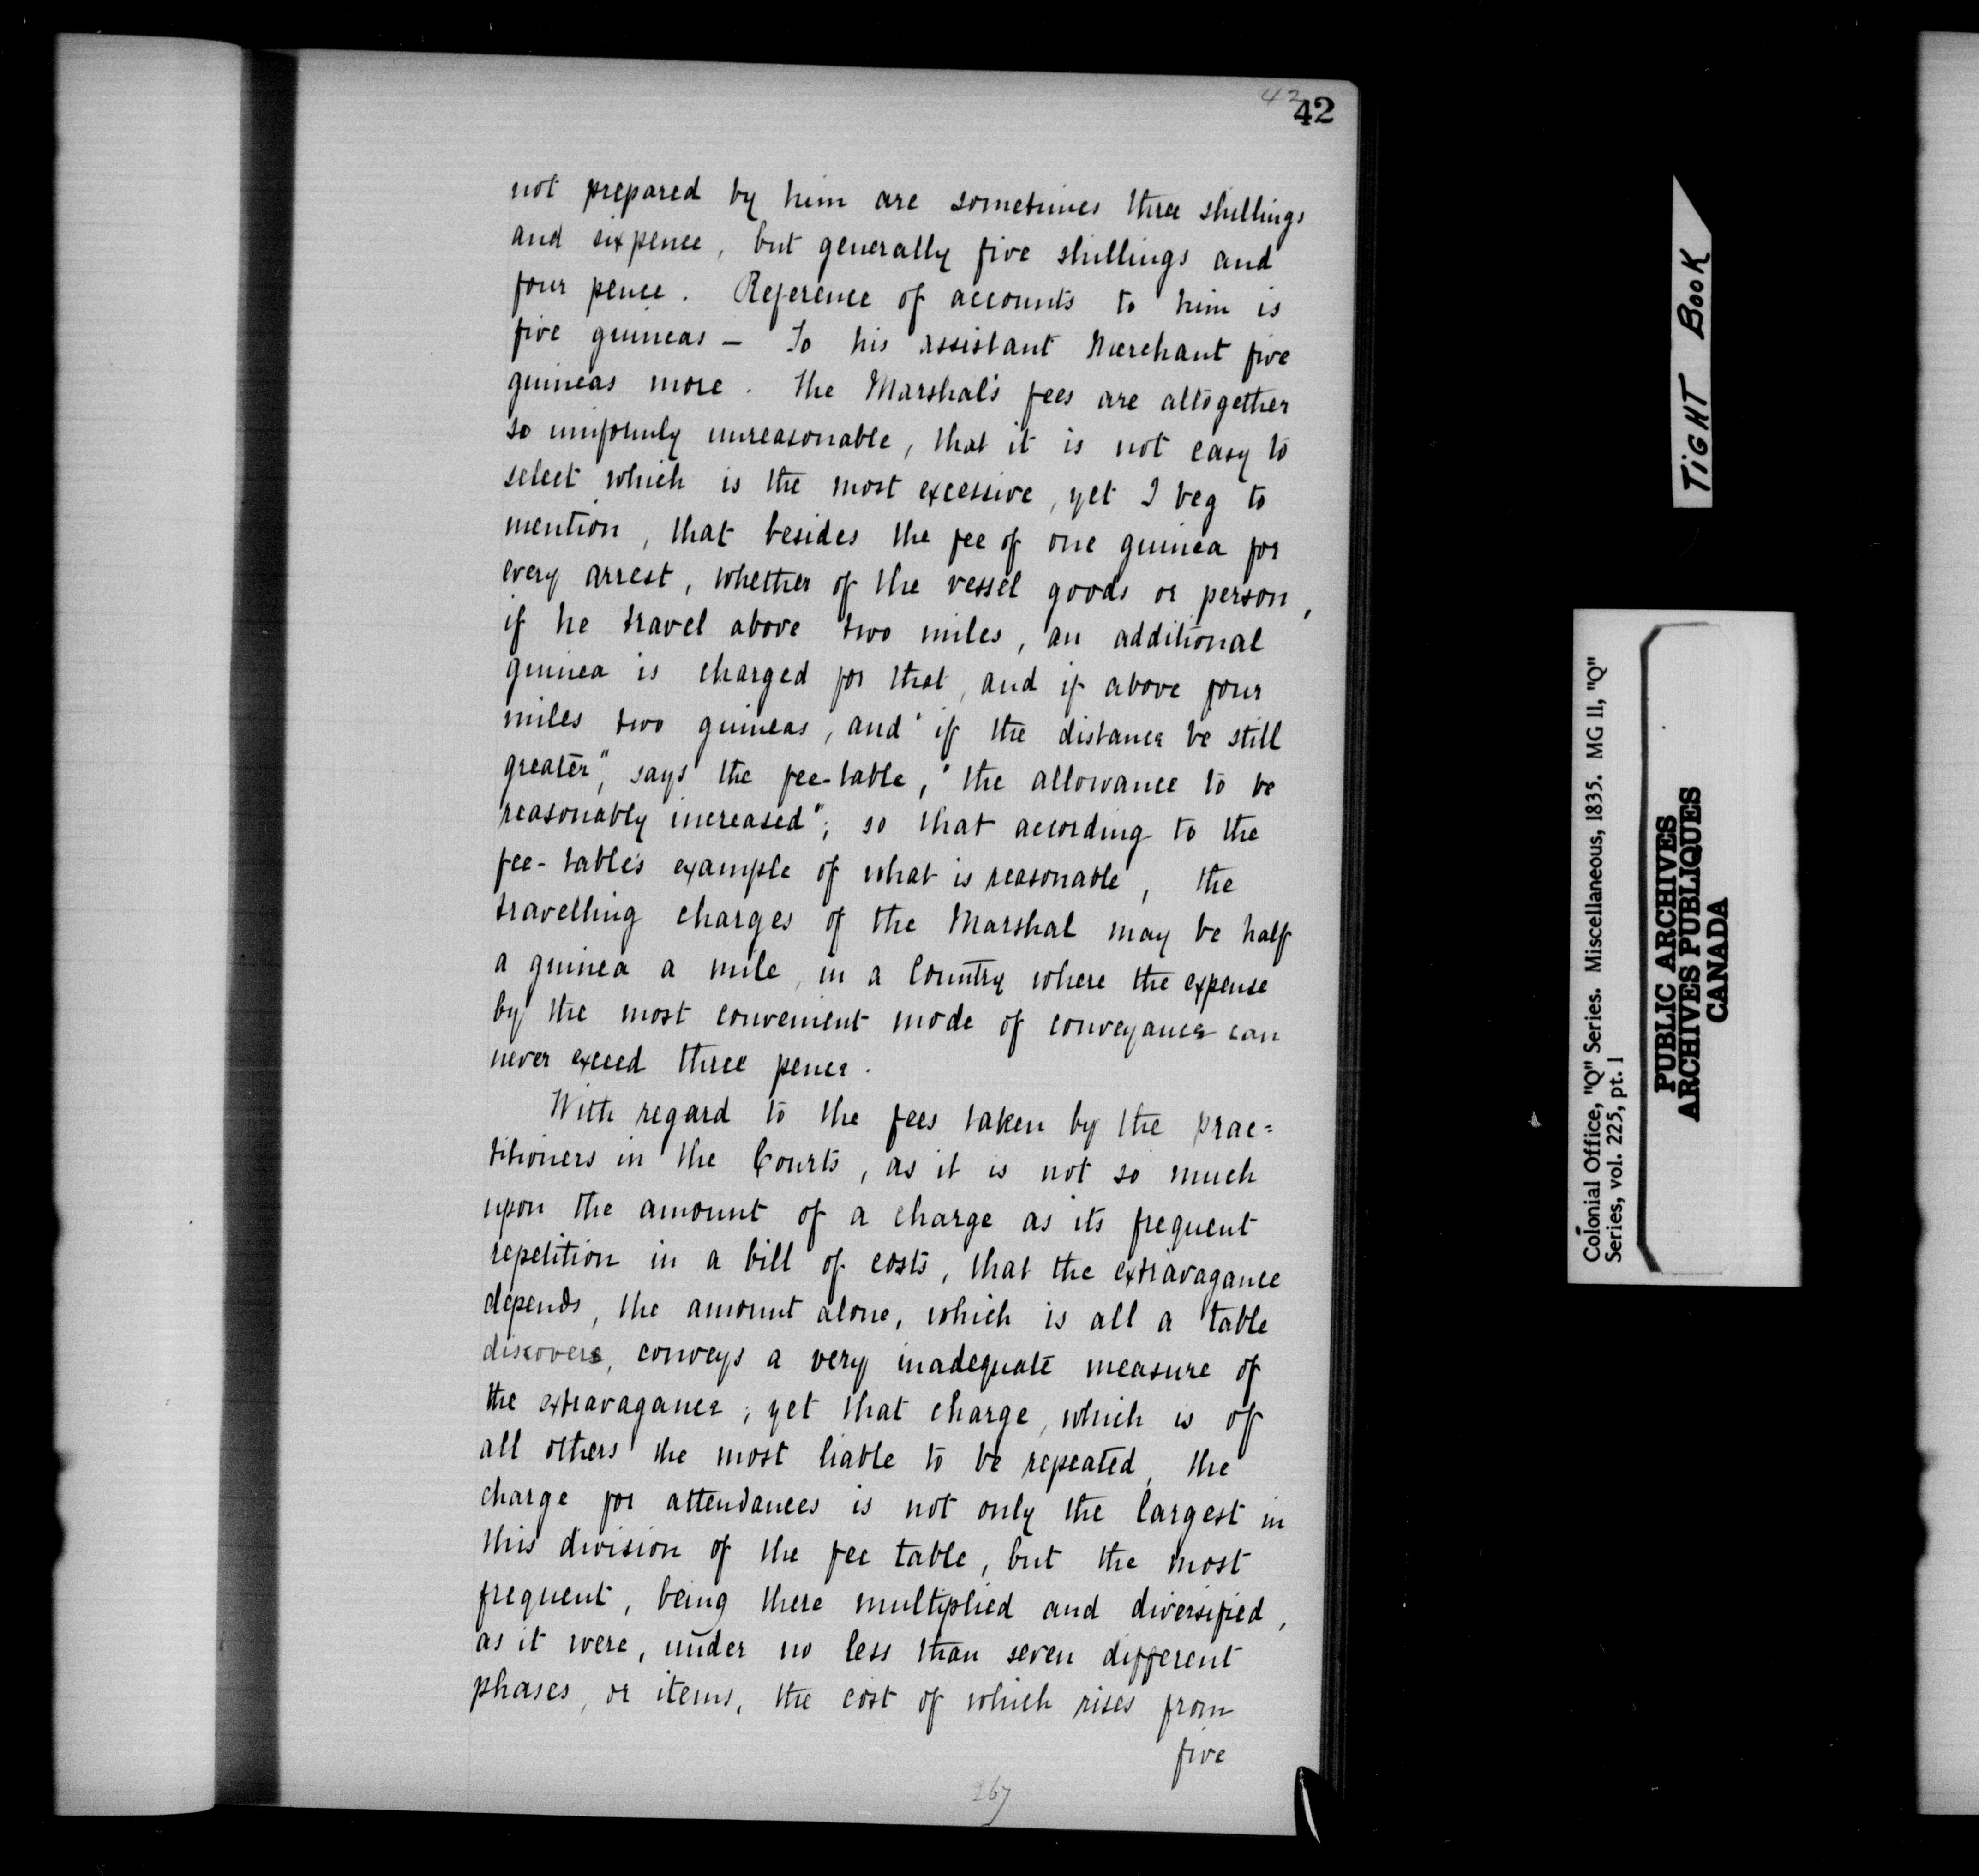 42
42
not prepared by him are sometimes three shillings
and sixpence, but generally five shillings and
four pence. Reference of accounts to him is
five guineas — To his assistant Merchant five
guineas more. The Marshal's fees are altogether
so uniformly unreasonable, that it is not easy to
select which is the most excessive, yet I beg to
mention, that besides the fee of one guinea for
every arrest, whether of the vessel goods or person,
if he travel above two miles, an additional
guinea is charged for that, and if above four
miles two guineas, and "if the distance be still
greater", says the fee-table, "the allowance to be
reasonably increased"; so that according to the
fee-table's example of what is reasonable, the
travelling charges of the Marshal may be half
a guinea a mile, in a Country where the expense
by the most convenient mode of conveyance can
never exceed three pence.
With regard to the fees taken by the prac=
titioners in the Courts, as it is not so much
upon the amount of a charge as its frequent
repetition in a bill of costs, that the extravagance
depends, the amount alone, which is all a table
discovers, conveys a very inadequate measure of
the extravagance; yet that charge, which is of
all others the most liable to be repeated, the
charge for attendances is not only the largest in
this division of the fee table, but the most
frequent, being there multiplied and diversified,
as it were, under no less than seven different
phases, or items, the cost of which rises from
five
267
TIGHT BOOK
Colonial Office, "Q" Series. Miscellaneous, 1835. MG 11, "Q"
Series, vol. 225, pt. 1
PUBLIC ARCHIVES
ARCHIVES PUBLIQUES
CANADA